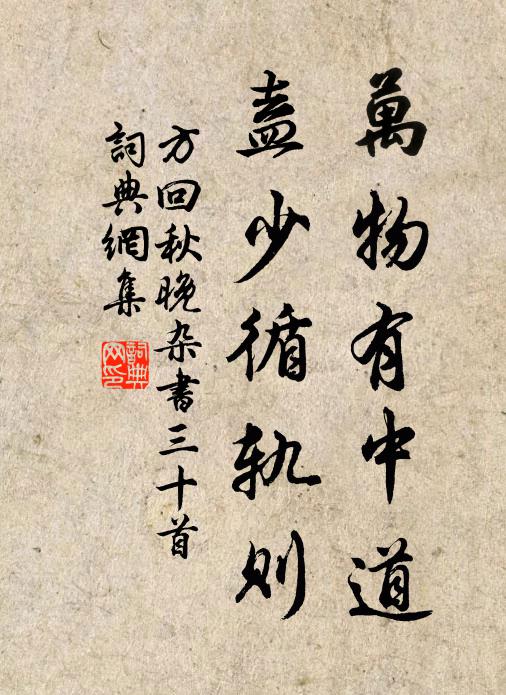 萬物有中道
盍少循軌則
方回秋晚杂書三十首
詞典網集
詞典
网印